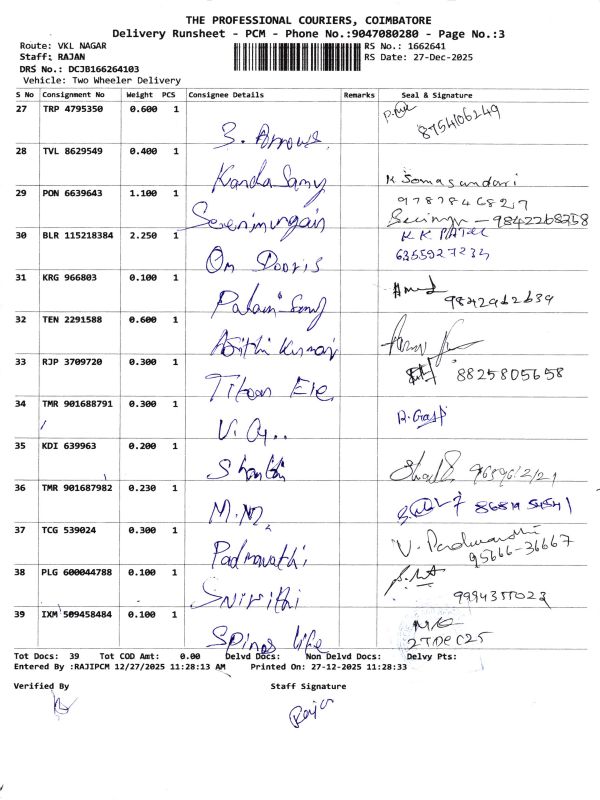 THE PROFESSIONAL COURIERS, COIMBATORE
Delivery Runsheet - PCM - Phone No.:9047080280 - Page No.:3
Route: VKL NAGAR RS No.: 1662641
Staff: RAJAN RS Date: 27-Dec-2025
DRS No.: DCJB166264103
Vehicle: Two Wheeler Delivery
S No Consignment No Weight PCS Consignee Details Remarks Seal & Signature
27 TRP 4795350 0.600 1
8754106249
3. Arrows.
28 TVL 8629549 0.400 1
Kanda Samy K Somasundari
29 PON 6639643 1.100 1 9787846827
Selvimurugan - 9842268258
30 BLR 115218384 2.250 1 K K PATEL
Om Doors 6355927234
31 KRG 966803 0.100 1
Palani Samy 9842912639
32 TEN 2291588 0.600 1
Ajith Kumar
33 RJP 3709720 0.300 1
Titan Ele, 8825805658
34 TMR 901688791 0.300 1
V. G..
35 KDI 639963 0.200 1
Shanthi
36 TMR 901687982 0.230 1
M.M2
37 TCG 539024 0.300 1 V. Padmavathi
Padmavathi 95666-36667
38 PLG 600044788 0.100 1
Snirithi 9994355023
39 IXM 509458484 0.100 1
Spinos life 27DEC25
Tot Docs: 39 Tot COD Amt: 0.00 Delvd Docs: Non Delvd Docs: Delvy Pts:
Entered By :RAJIPCM 12/27/2025 11:28:13 AM Printed On: 27-12-2025 11:28:33
Verified By Staff Signature
Rajan